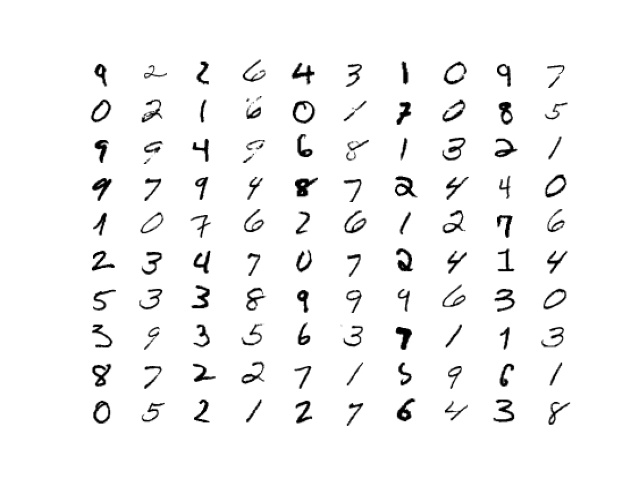 9 2 2 6 4 3 1 0 9 7
0 2 1 6 0 1 7 0 8 5
9 9 4 9 6 8 1 3 2 1
9 7 9 4 8 7 2 4 4 0
1 0 7 6 2 6 1 2 7 6
2 3 4 7 0 7 2 4 1 4
5 3 3 8 9 9 9 6 3 0
3 9 3 5 6 3 7 1 1 3
8 7 2 2 7 1 5 9 6 1
0 5 2 1 2 7 6 4 3 8